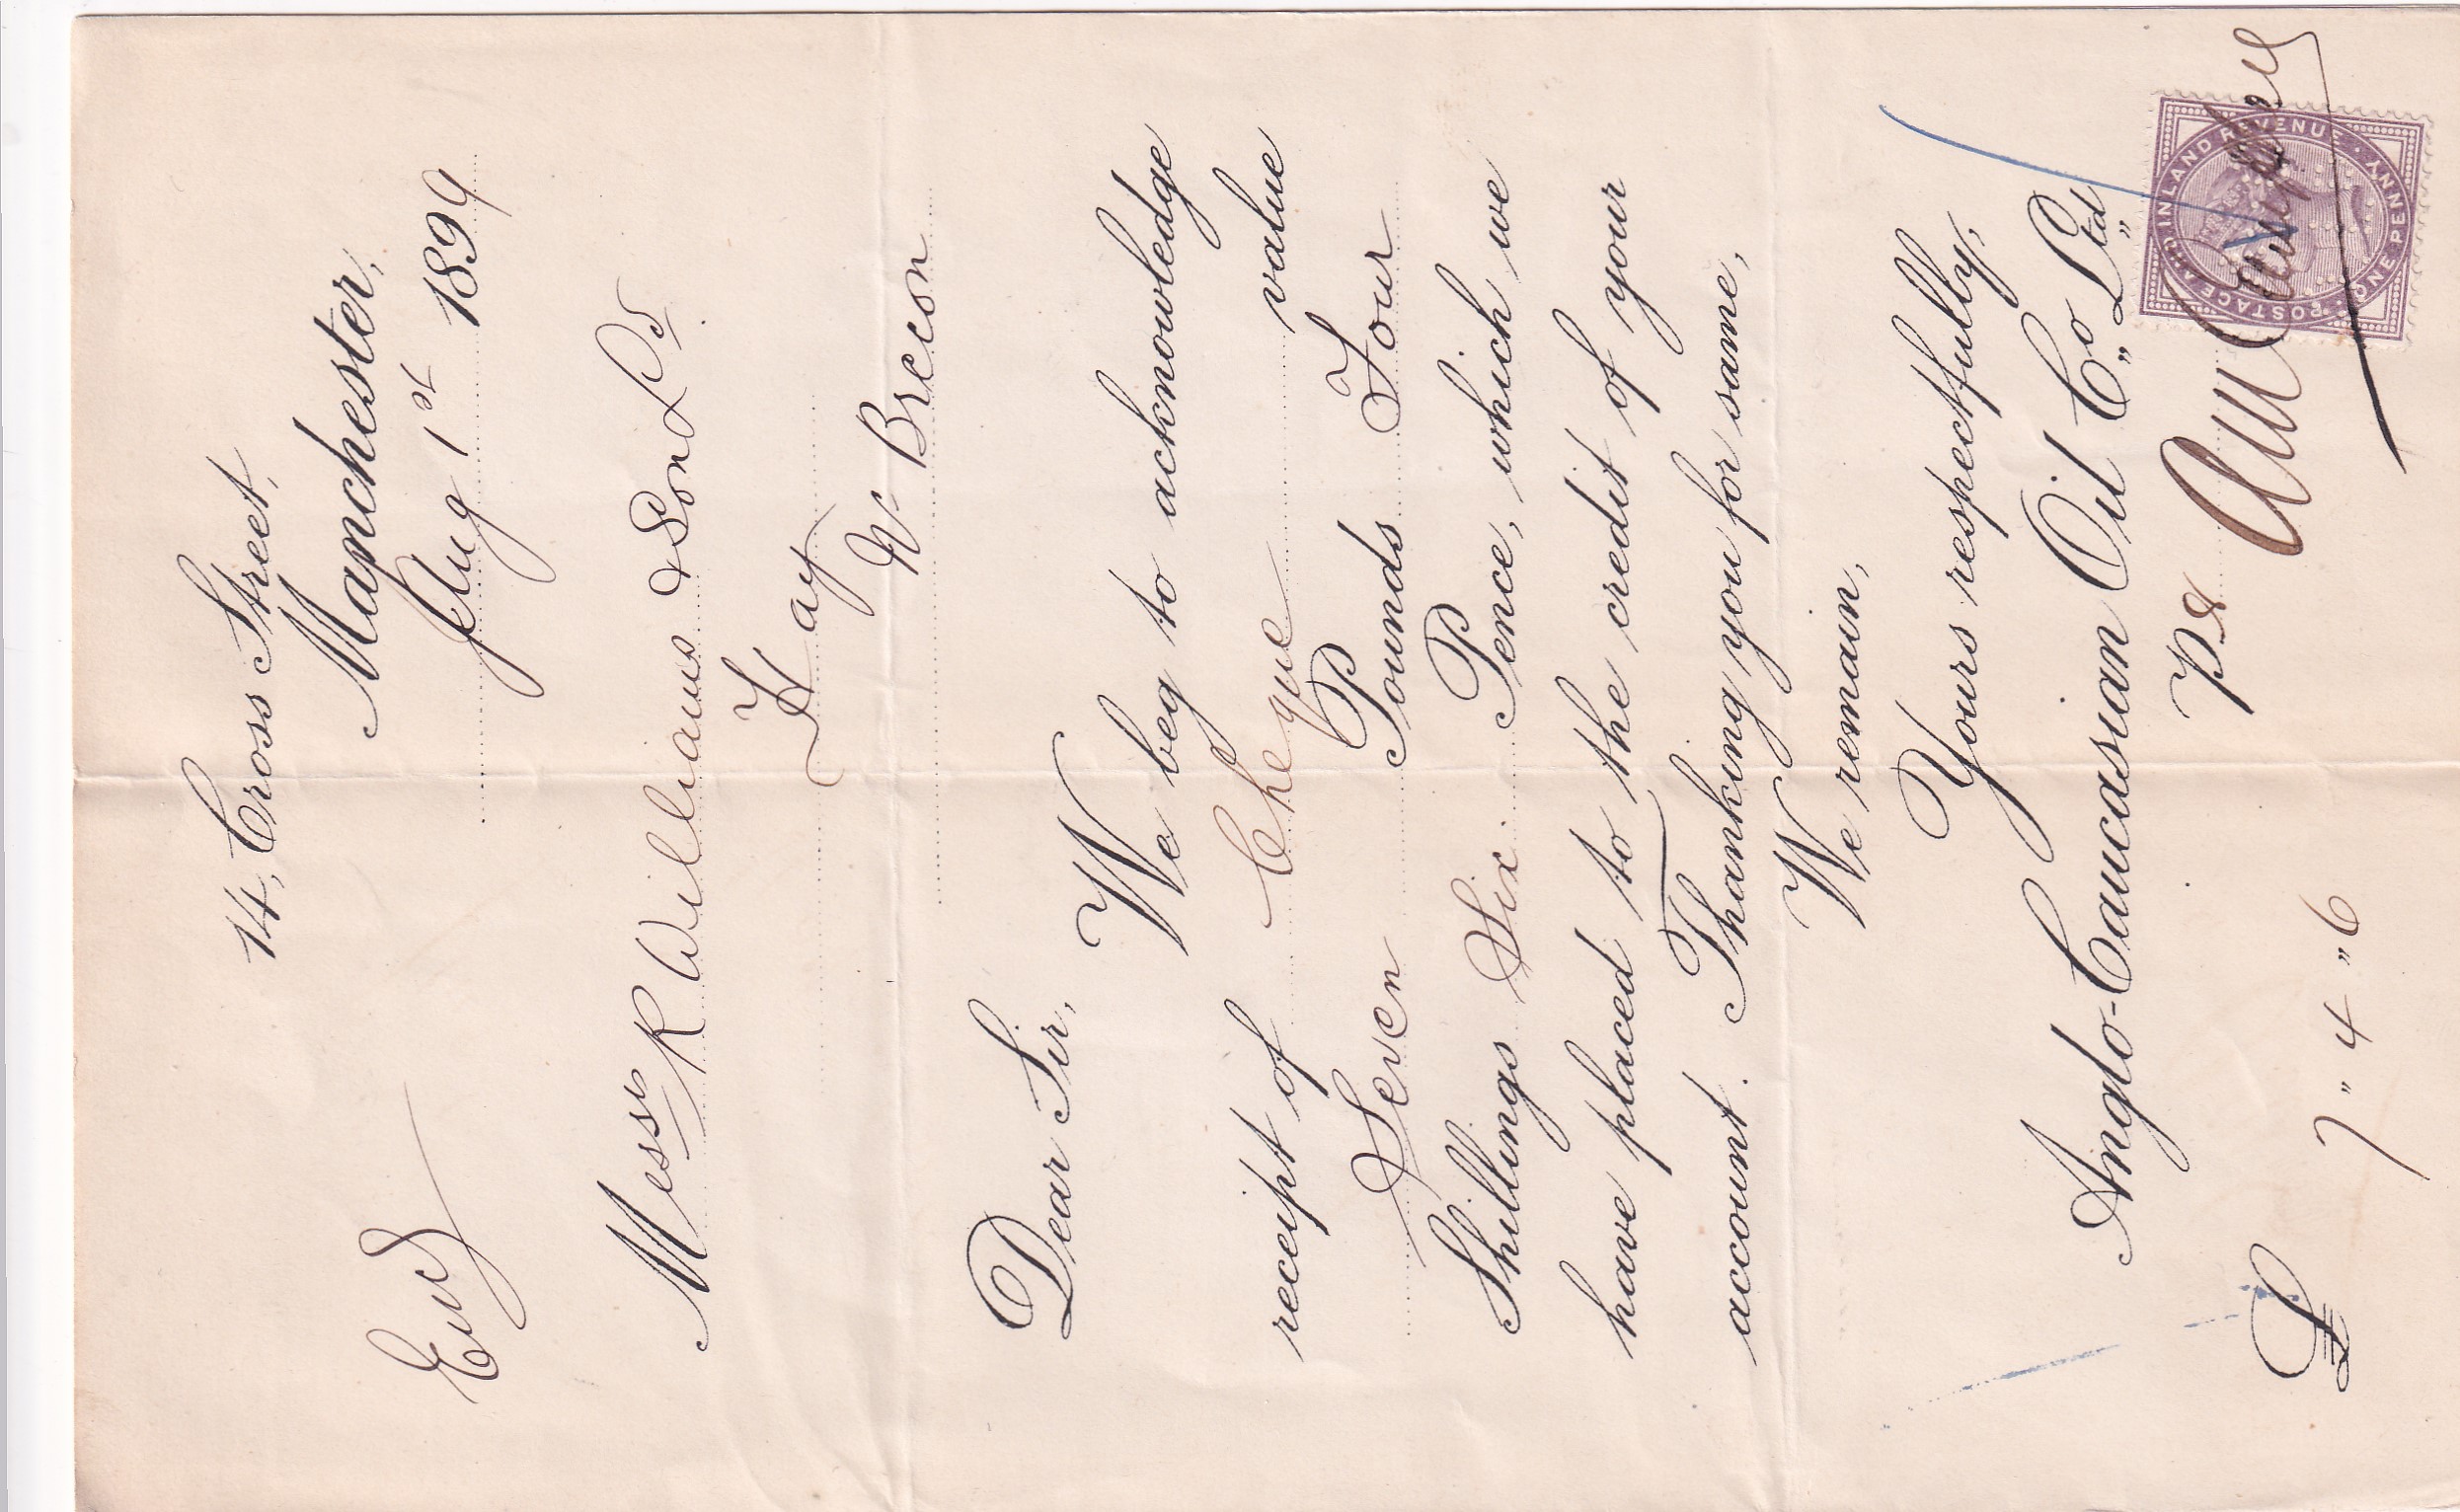 14, Cross Street,
Manchester,
Aug 1st 1899
Messrs R Williams & Son Ld
Hay
Nr Brecon
Dear Sir,
We beg to acknowledge
receipt of Cheque value
Seven Pounds Four
Shillings Six Pence, which we
have placed to the credit of your
account. Thanking you for same,
We remain,
Yours respectfully,
Anglo-Caucasian Oil Co Ltd
pr
£ 7 " 4 " 6
POSTAGE AND INLAND REVENUE · ONE PENNY